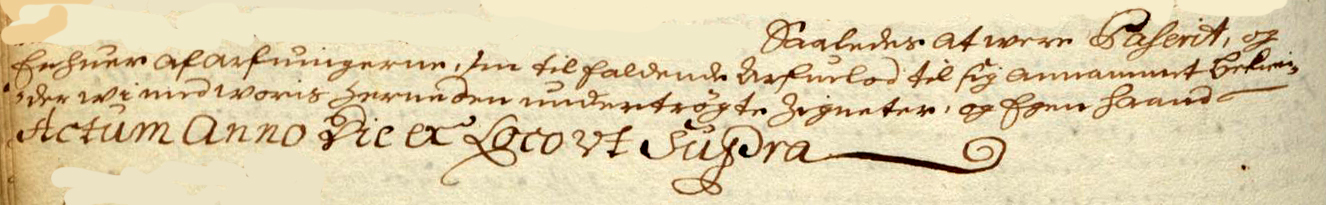 Saaledes at were Paserit, og
Enhuer af arfuingerne, sin til faldende Arfuelod til sig annammet bekien,
,der wi med woris herneden undertrögte Zigneter, og Egen haand
Actum Anno Die ex Loco ut Supra